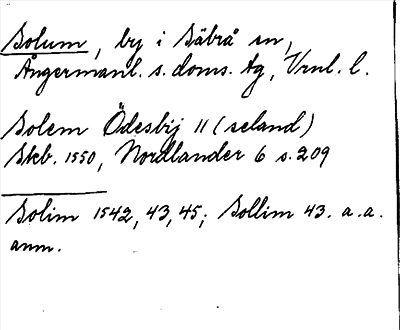 Solum, by i Säbrå sn,
Ångermanl. s. doms. tg, Vrnl. l.
Solem Ödesbij 11 (seland)
Skb. 1550, Nordlander 6 s. 209
Solim 1542, 43, 45; Sollim 43. a. a.
anm.